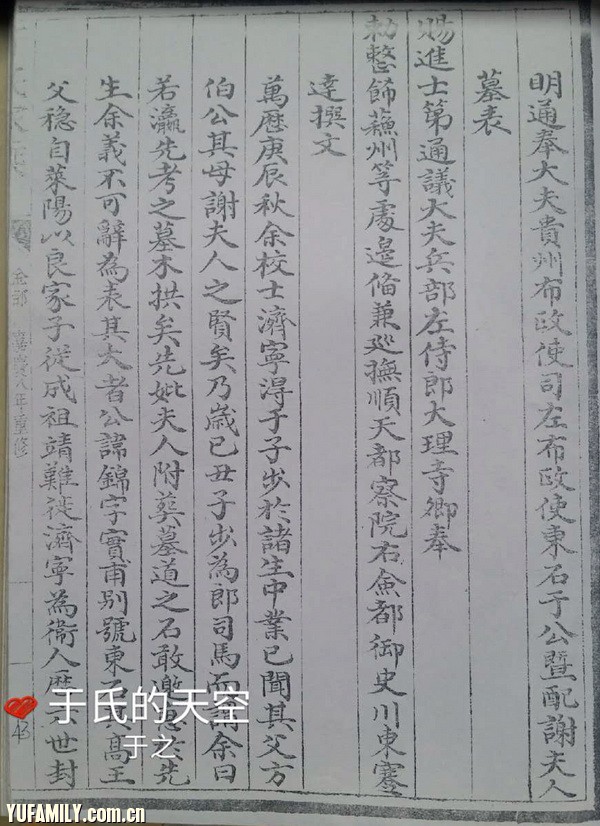 明通奉大夫貴州布政使司左布政使東石于公暨配謝夫人
墓表
賜進士第通議大夫兵部左侍郎大理寺卿奉
勅整飾蘓州等處邊俻兼廵撫順天都察院右僉都御史川東蹇
達撰文
萬歷庚辰秋余校士濟寧淂于子步於諸生中業已聞其父方
伯公其母謝夫人之賢矣乃嵗已丑子步為郎司馬而請余曰
若瀛先考之墓木拱矣先妣夫人附葬墓道之石敢邀惠於先
生余義不可辭為表其大者公諱錦字實甫別號東石其髙王
父穏自萊陽以良家子從成祖靖難徙濟寧為衞人歷 世封
金部 嘉慶八年重修
43
于氏的天空
于之
YUFAMILY.com.cn